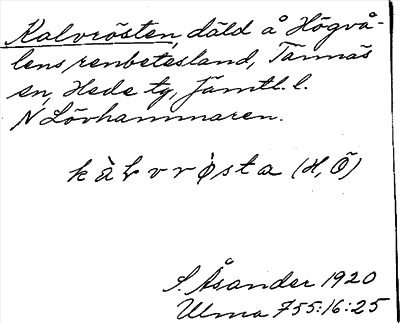 Kalvrösten, däld å Högvå-
lens renbetesland, Tännäs
sn, Hede tg, Jämtl. l.
N Lövhammaren.
kàḷvrø̀sta (H, Õ)
S. Åsander 1920
Ulma 755:16:25